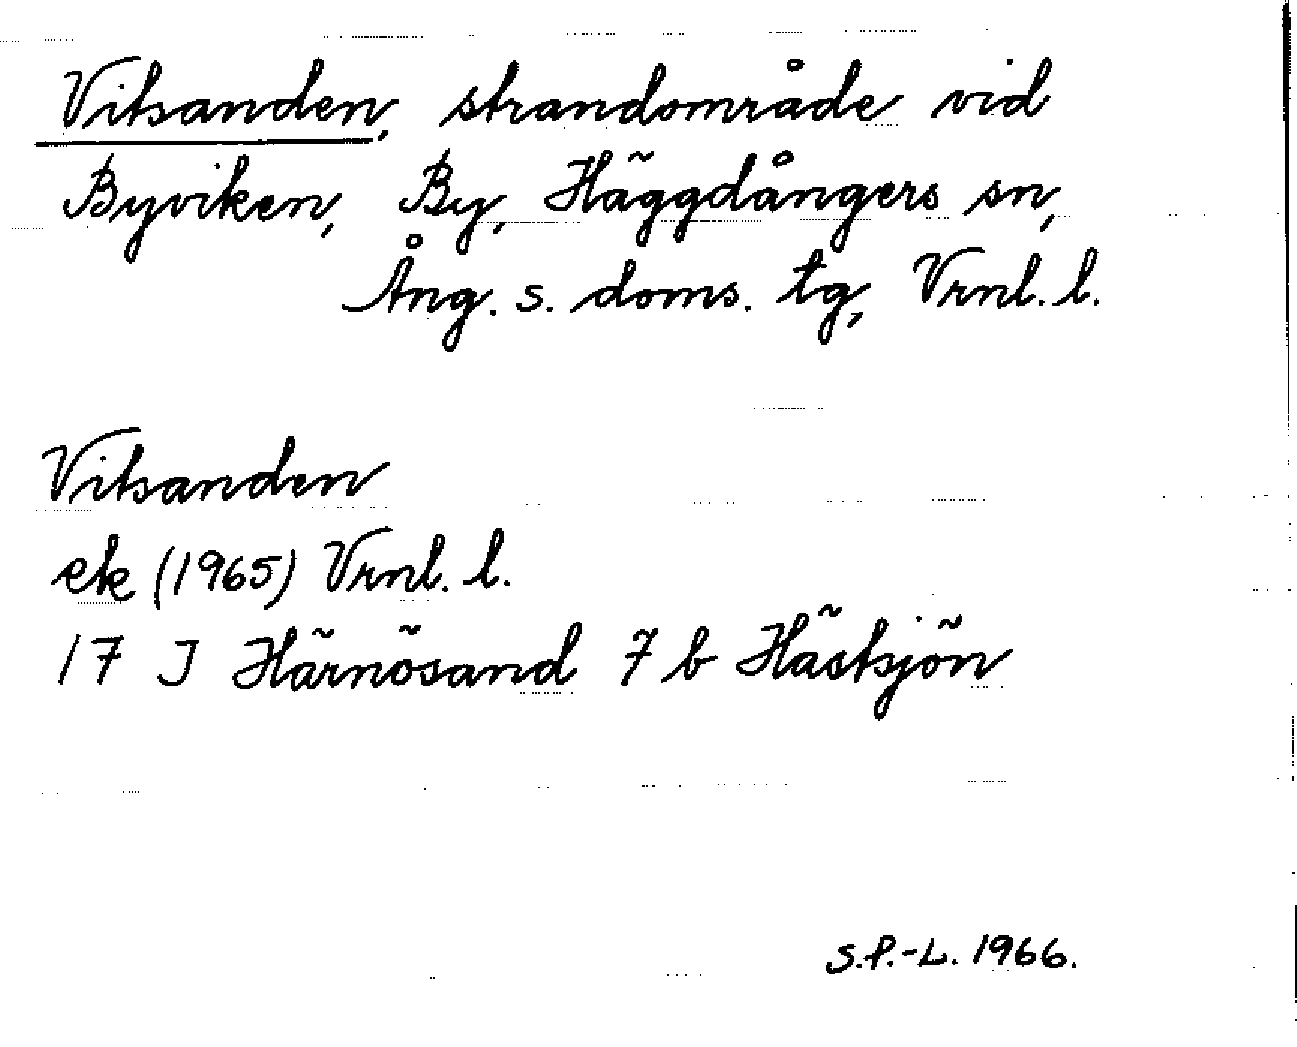 Vitsanden, strandområde vid
Byviken, By, Häggdångers sn,
Ång. s. doms. tg, Vrnl. l.
Vitsanden
ek (1965) Vrnl. l.
17 J Härnösand 7 b Hästsjön
S.P.-L. 1966.